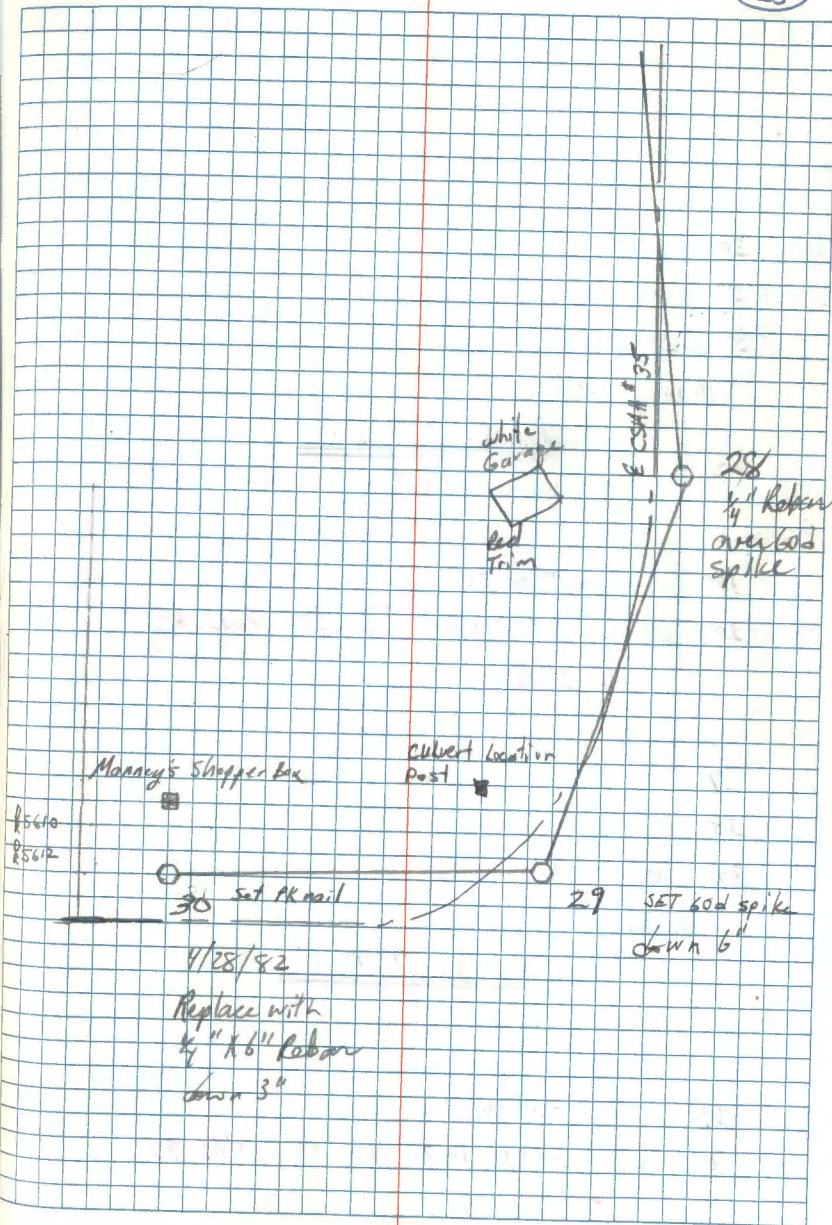 ℄ CSAH # 35
White
Garage
Red
Trim
28
1/4" Rebar
over 60d
spike
Manney's Shopper Box
culvert Location
Post
R5610
R5612
30 Set PK nail
29 SET 60d spike
down 6"
4/28/82
Replace with
1/4" X 6" Rebar
down 3"